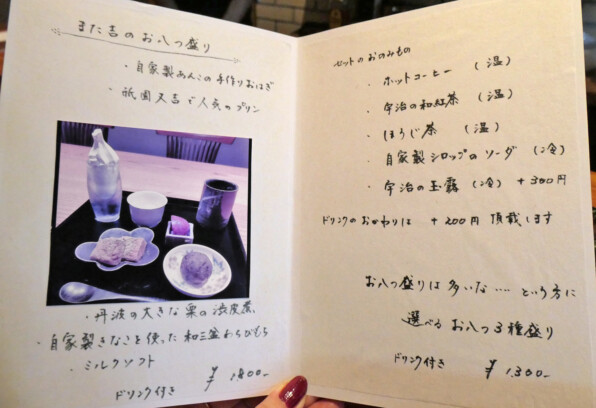 また吉のお八つ盛り
・自家製あんこの手作りおはぎ
・祇園又吉で人気のプリン
・丹波の大きな栗の渋皮煮
・自家製きなこを使った和三盆わらびもち
・ミルクソフト
ドリンク付き ¥1,800-
セットのおのみもの
・ホットコーヒー (温)
・宇治の和紅茶 (温)
・ほうじ茶 (温)
・自家製シロップのソーダ (冷)
・宇治の玉露 (冷) +300円
ドリンクのおかわりは +200円 頂戴します
お八つ盛りは多いな……という方に
選べるお八つ3種盛り
ドリンク付き ¥1,300-